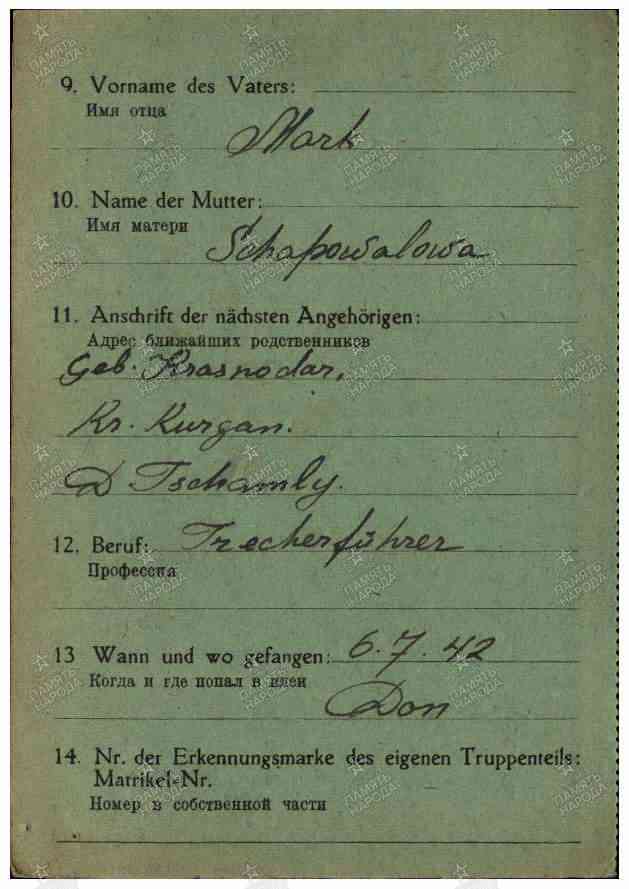 9. Vorname des Vaters:
Имя отца
Mark
10. Name der Mutter:
Имя матери
Schapowalowa
11. Anschrift der nächsten Angehörigen:
Адрес ближайших родственников
Geb. Krasnodar,
Kr. Kurgan.
D Tschamly.
12. Beruf: Trecherführer
Профессия
13 Wann und wo gefangen: 6.7.42
Когда и где попал в плен
Don
14. Nr. der Erkennungsmarke des eigenen Truppenteils:
Matrikel-Nr.
Номер в собственной части
ПАМЯТЬ НАРОДА